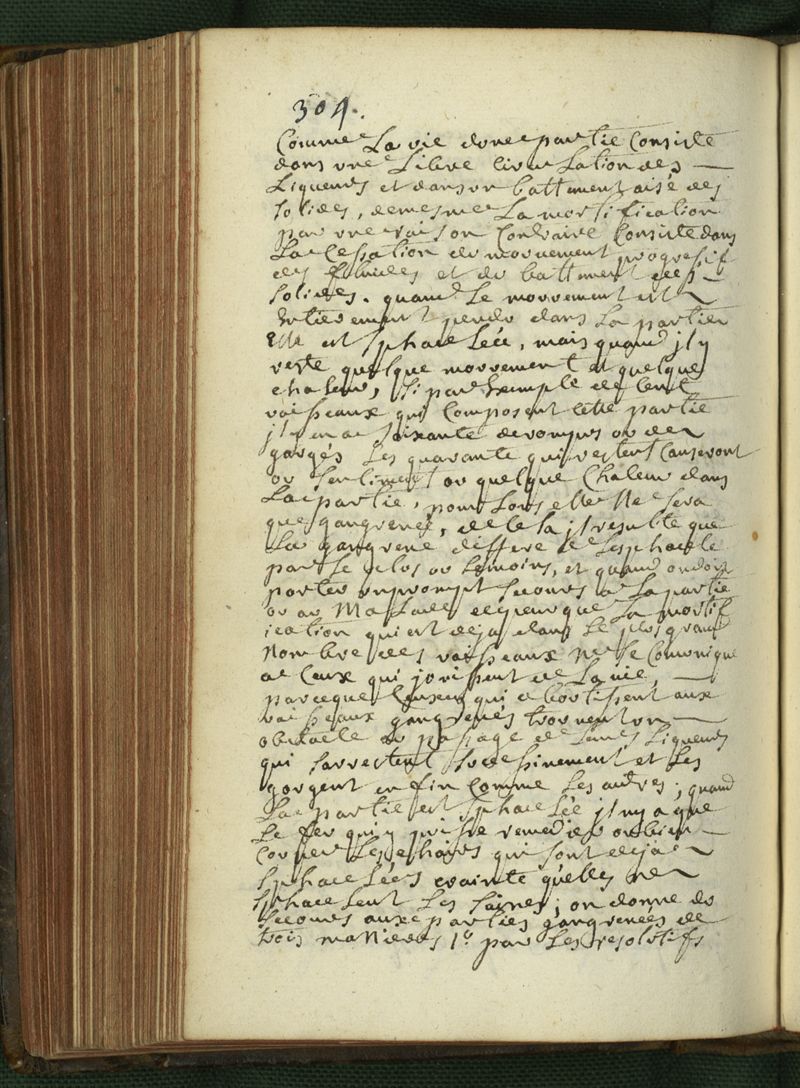 304.
Comme La vie d'une partie Consiste
dans une Libre circulation des
Liqueurs et dans un battement aisé des
solides, demesme La mortification
par une raison Contraire Consiste dans
La Cessation du mouvement progressif
des fluides et du battement des
solides. quand Le mouvement est
Entierement perdu dans La partie
Elle est sphacelée, mais quand jl y
reste quelque mouvement et quelque
chaleur, si par Exemple de Cent
vaisseaux qui Composent Cette partie
jl y en a soixante derompus ou de
gorgés Les quarante qui restent Causeront
ou sentiment ou quelque Chaleur dans
La partie, pour Lors elle Ne sera
que gangrenée, de Cela jl resulte que
La gangrene differe de Lesphacele
par Le plus ou Lemoins, et quand on doit
porter unprompt secours a La partie
ou au Malade depeur que La mortif
ication qui est deja dans Le plus grand
Nombre des vaisseaux Ne se Comunique
a Ceux qui jouissent de La vie,
parceque Ceux qui abortissent aux
vaisseaux gangrenés trouvent un
obstacle au passage de Leurs Liqueurs
qui sarrestent et Les
gorgent en fin Comme Les autres; quand
La partie est sphacelée jl ny a que
Le fer qui y puisse remedier oubien
Couper Les chairs qui sont deja
sphacelées crainte quelles ne
sphacelent Les saines; on donne du
secours aux parties gangrenées de
trois manieres 1º par Les resolutifs